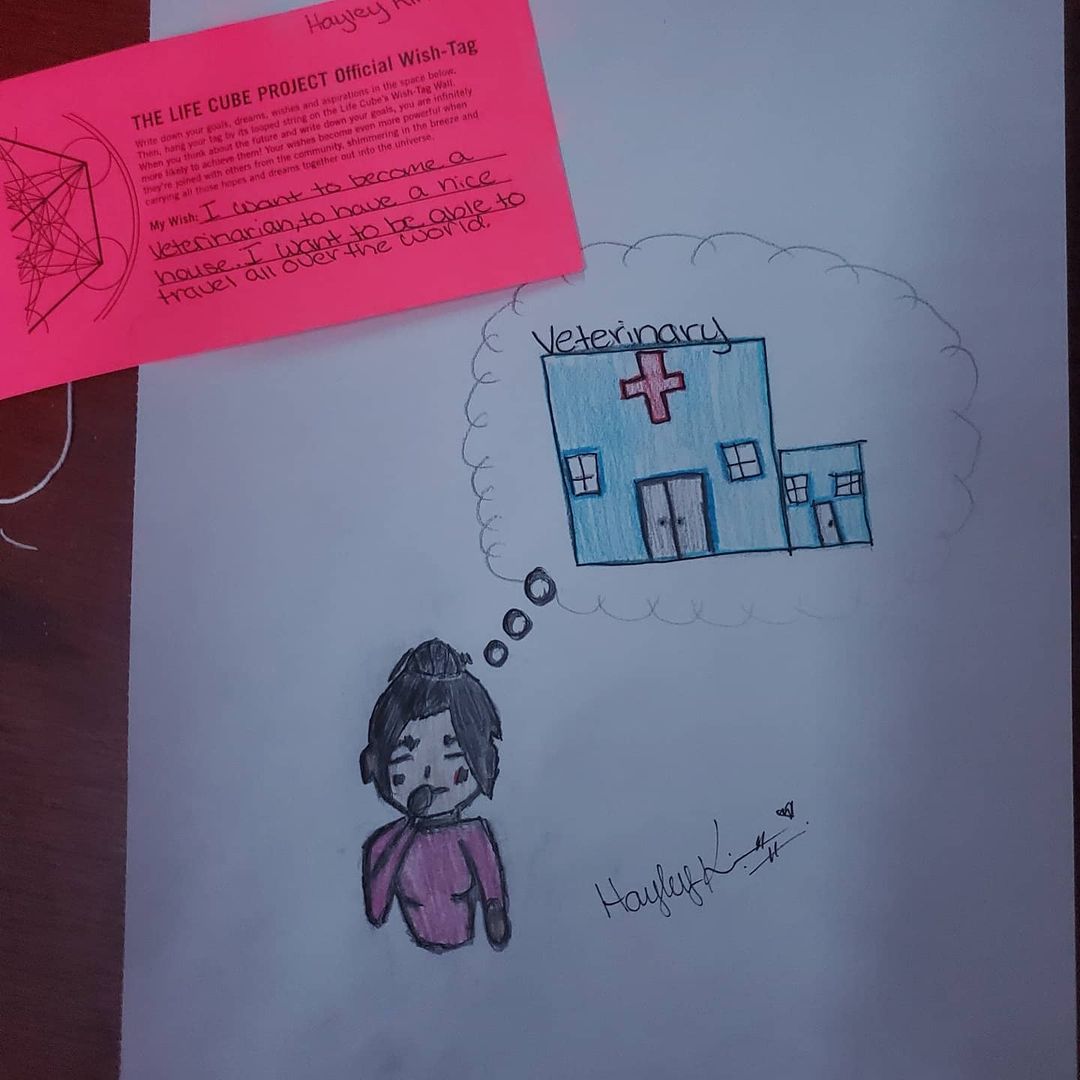 Hayley
THE LIFE CUBE PROJECT Official Wish-Tag
Write down your goals, dreams, wishes and aspirations in the space below.
Then, hang your tag by its looped string on the Life Cube's Wish-Tag Wall.
When you think about the future and write down your goals, you are infinitely
more likely to achieve them! Your wishes become even more powerful when
they're joined with others from the community, shimmering in the breeze and
carrying all those hopes and dreams together out into the universe.
My Wish: I want to become a
Veterinarian, to have a nice
house.. I want to be able to
travel all over the world.
Veterinary
Hayley